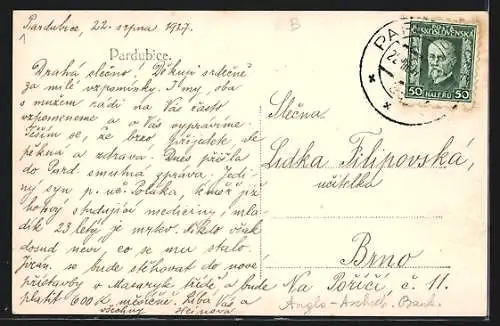 Pardubice, 22. srpna 1927.
B
Pardubice.
Drahá slečno! Děkuji srdečně
za milé vzpomínky. I my, oba
s mužem rádi na Vás často
vzpomeneme a o Vás vyprávíme.
Těším se, že brzo přijedete, ale
pěkná a zdravá. Dnes přišla
do Pard. smutná zpráva. Jedi-
ný syn p. uč. Poláka,
hotový studující medicíny, mla-
dík 23 letý je mrtev. Nikdo však
dosud neví, co se mu stalo.
se bude stěhovat do nové
přístavby v Masaryk. třídě a bude
platit 600 K měsíčně. Líbá Vás a
všechny
PAR
ČESKOSLOVENSKÁ
50 HALÉŘŮ 50
Slečna
Lidka Filipovská,
učitelka
Brno
Na Poříčí, č. 11.
Anglo-Bank.